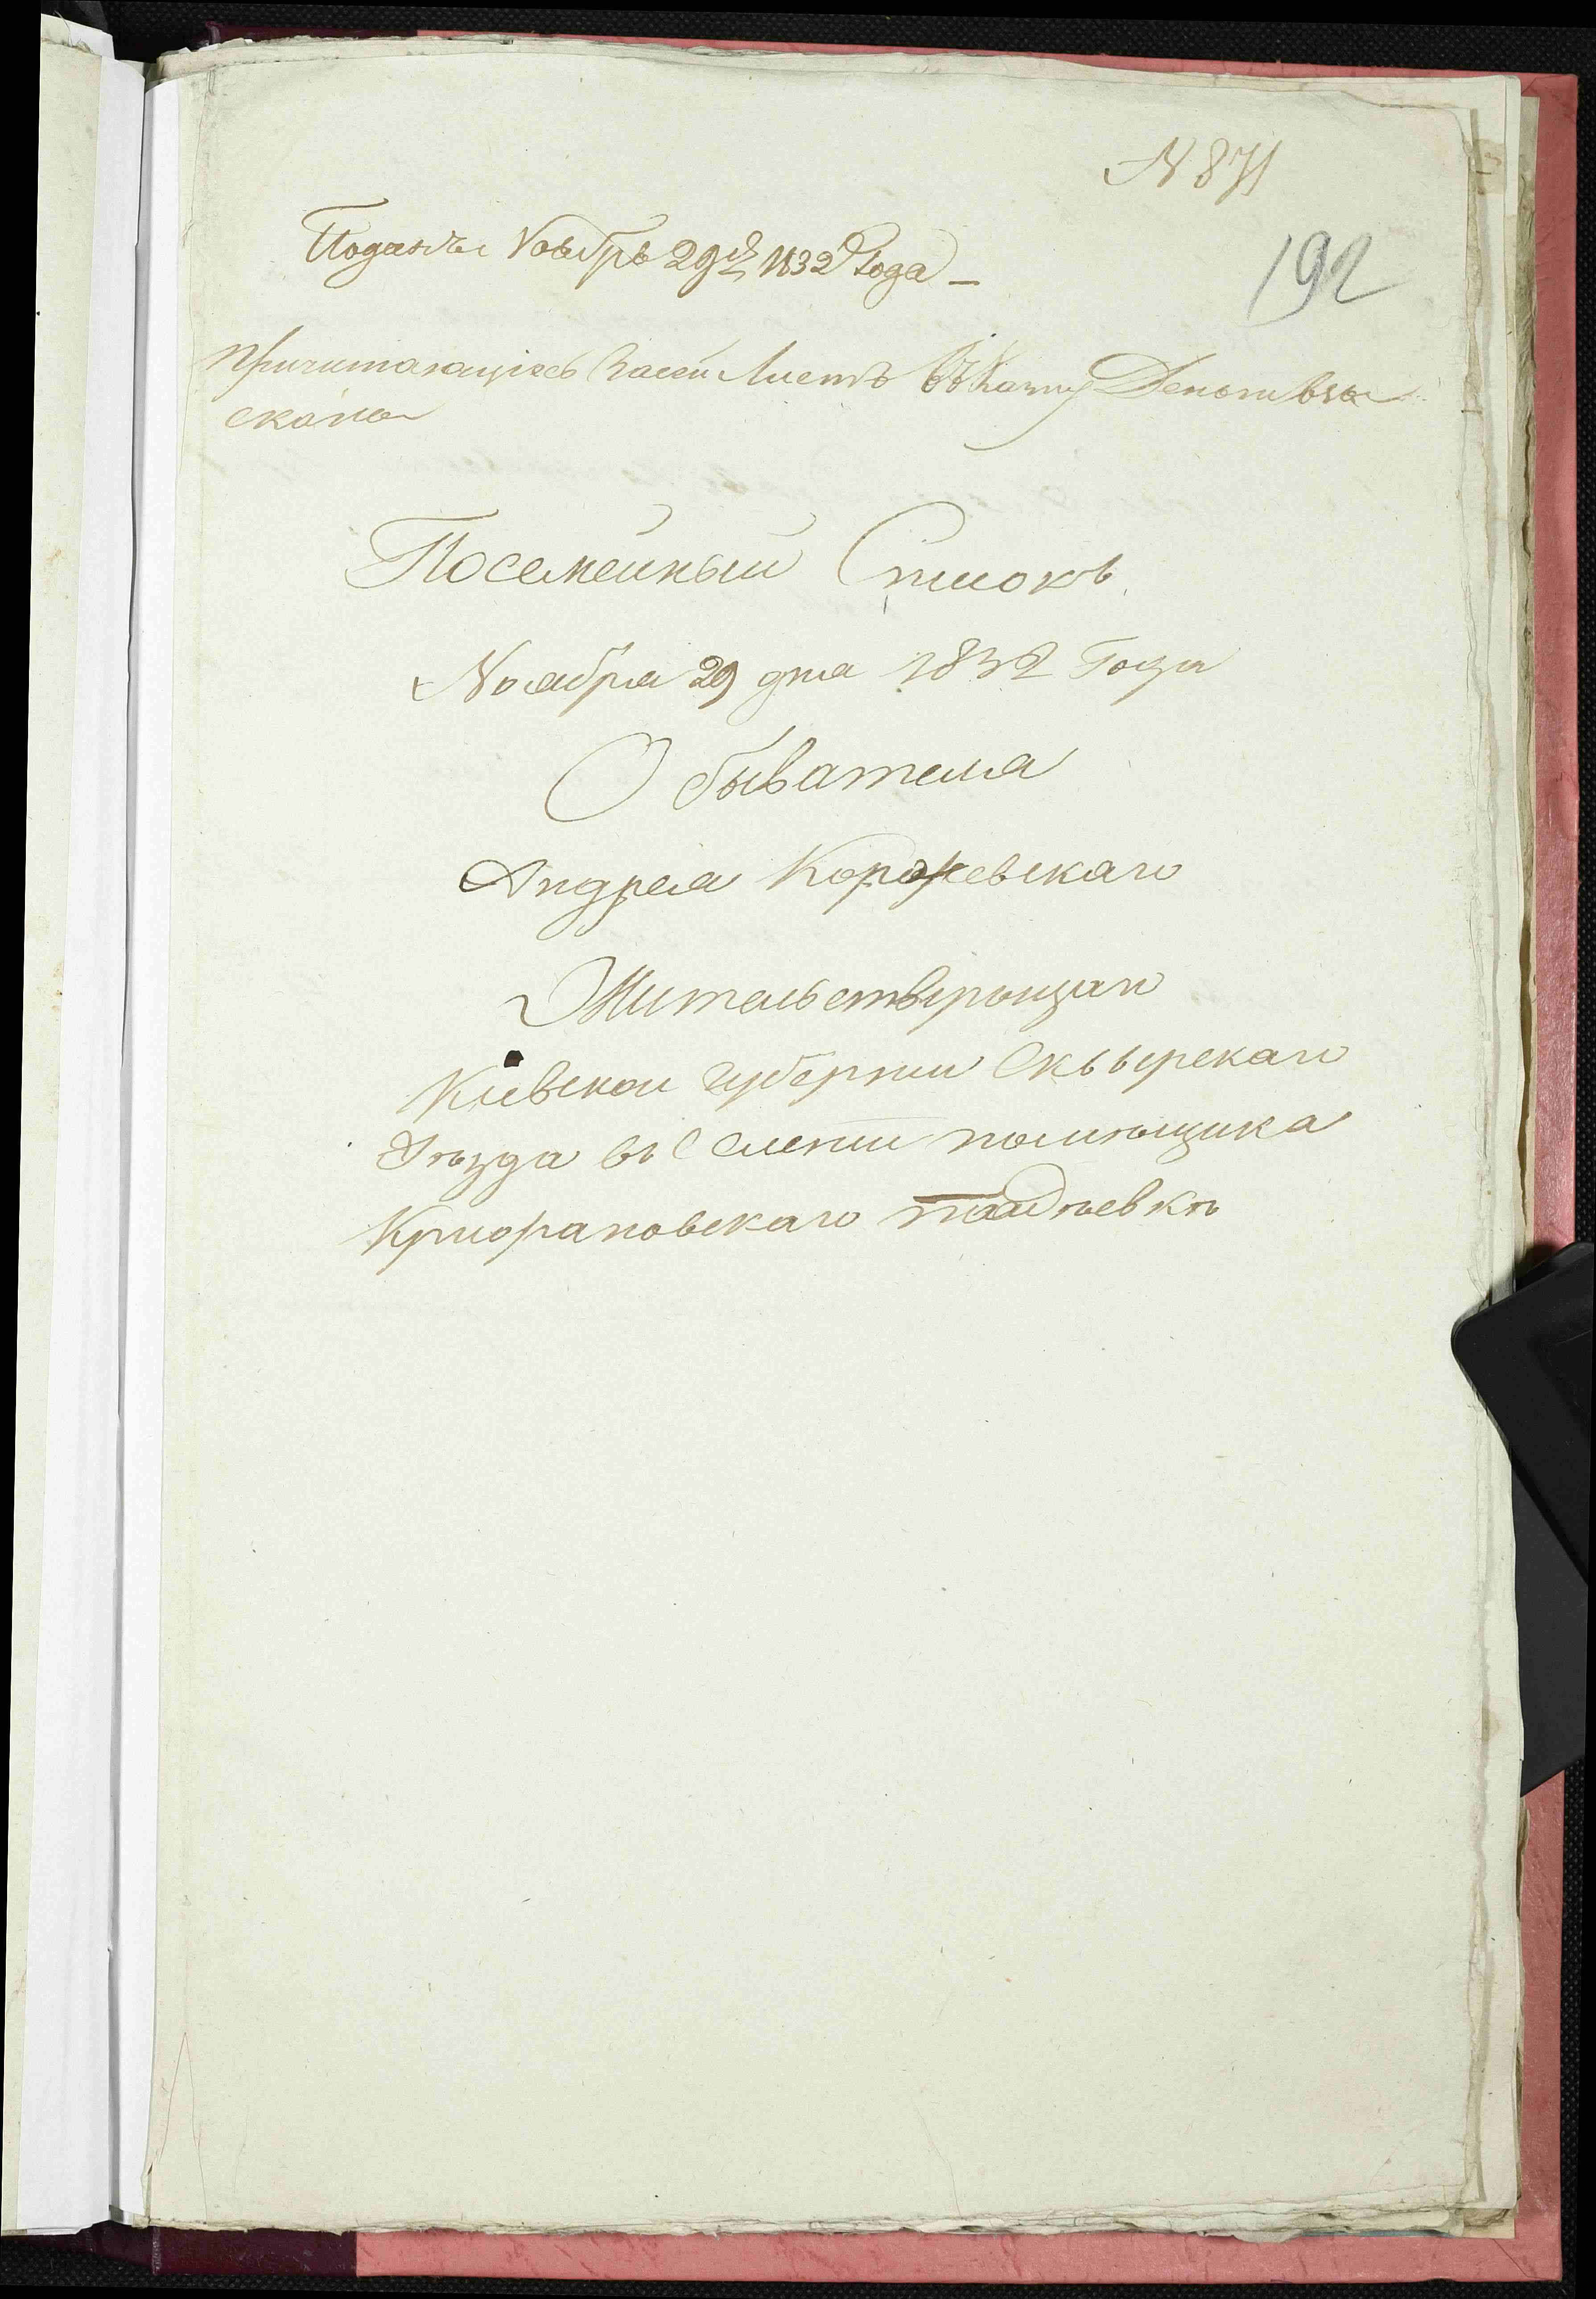 N 871
Поданъ Ноябрь 29 1832 Года —
192
Причитающіесь За сей Листъ въ Казну Деньги взы
скано
Посемейный Списокъ
Ноабря 29 дня 1832 Года
Обывателя
Андрея Коржевскаго
Жительствующаго
Кіевской губерніи Сквирскаго
Уезда въ Селеніи помѣщика